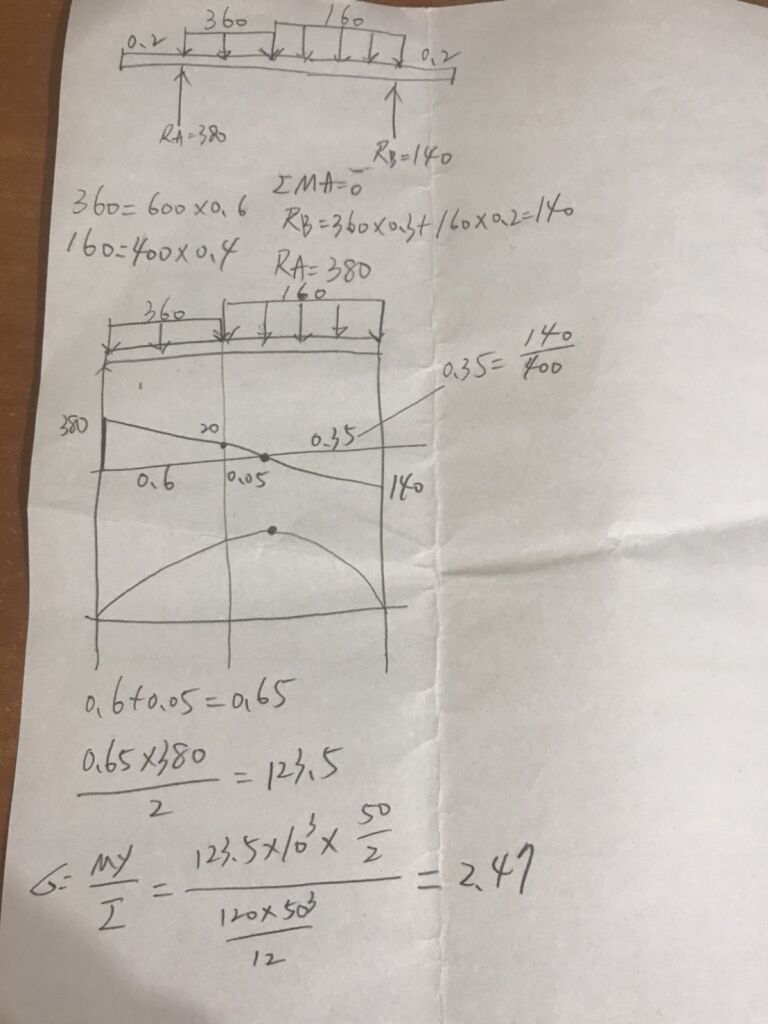 360 160
0.2 0.2
RA=380
RB=140
ΣMA=0
360=600×0.6
RB=360×0.3+160×0.2=140
160=400×0.4
RA=380
360 160
0.35=140/400
380 20 0.35
0.6 0.05 140
0.6+0.05=0.65
0.65×380/2=123.5
σ=My/I=123.5×10³×50/2/120×50³/12=2.47